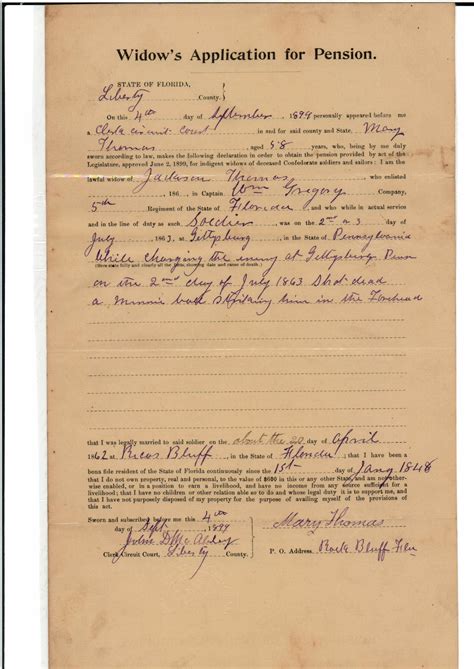 Widow's Application for Pension.
STATE OF FLORIDA,
Liberty County.
On this 4th day of September 1899 personally appeared before me
a Clerk circuit court in and for said county and State, Mary
Thomas aged 58 years, who, being by me duly
sworn according to law, makes the following declaration in order to obtain the pension provided by act of the
Legislature, approved June 2, 1899, for indigent widows of deceased Confederate soldiers and sailors: I am the
lawful widow of Jackson Thomas who enlisted
186 in Captain Wm Gregory Company,
5th Regiment of the State of Florida, and who while in actual service
and in the line of duty as such Soldier was on the 2nd or 3 day of
July 1863, at Gettysburg, in the State of Pennsylvania
While charging the enemy at Gettysburg Penn
(Here state fully and clearly all the facts, showing date and cause of death.)
on the 2nd day of July 1863 Shot dead
a Minnie ball striking him in the Forehead
that I was legally married to said soldier on the about the 20 day of April
1862 at Ricos Bluff, in the State of Florida; that I have been a
bona fide resident of the State of Florida continuously since the 1st day of Jany 1848
that I do not own property, real and personal, to the value of $600 in this or any other State, and am not other-
wise enabled, or in a position to earn a livelihood, and have no income from any source sufficient for a
livelihood; that I have no children or other relation able so to do and whose legal duty it is to support me, and
that I have not purposely disposed of my property for the purpose of availing myself of the provisions of this
act.
Sworn and subscribed before me this 4th
day of Sept 1899
Mary Thomas
Clerk Circuit Court, Liberty County.
P. O. Address. Rock Bluff Fla